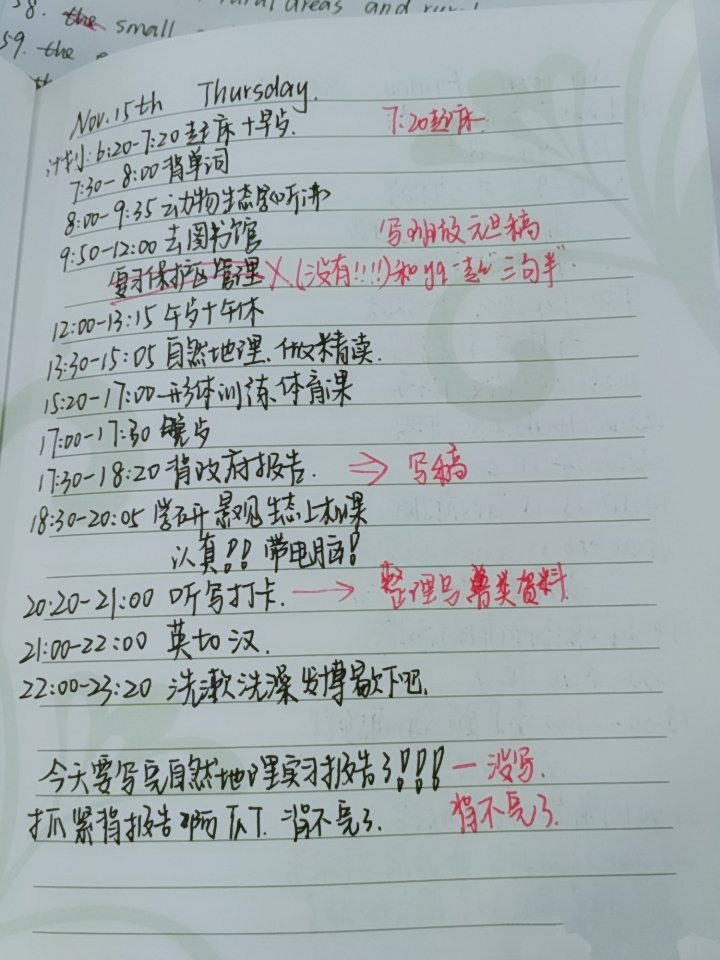 58. the small rural areas and rural
59. the
Nov. 15th Thursday.
计划: 6:20-7:20 起床+早占. 7:20起床
7:30-8:00 背单词
8:00-9:35 动物生态学 听讲
9:50-12:00 去图书馆 写 元旦稿
复习保护区管理 X (没有!!!!) 和yq一起“三句半”
12:00-13:15 午占+午休
13:30-15:05 自然地理、做精读.
15:20-17:00 形体训练、体育课
17:00-17:30 晚占
17:30-18:20 背政府报告. ⇒ 写稿
18:30-20:05 学研 景观生态上机课
认真!! 带电脑!
20:20-21:00 听写打卡. → 整理鸟兽类资料
21:00-22:00 英切汉.
22:00-23:20 洗漱洗澡发博歇下吧.
今天要写完自然地理实习报告了!!!! — 没写.
抓紧背报告啊 TAT. 背不完了. 背不完了.